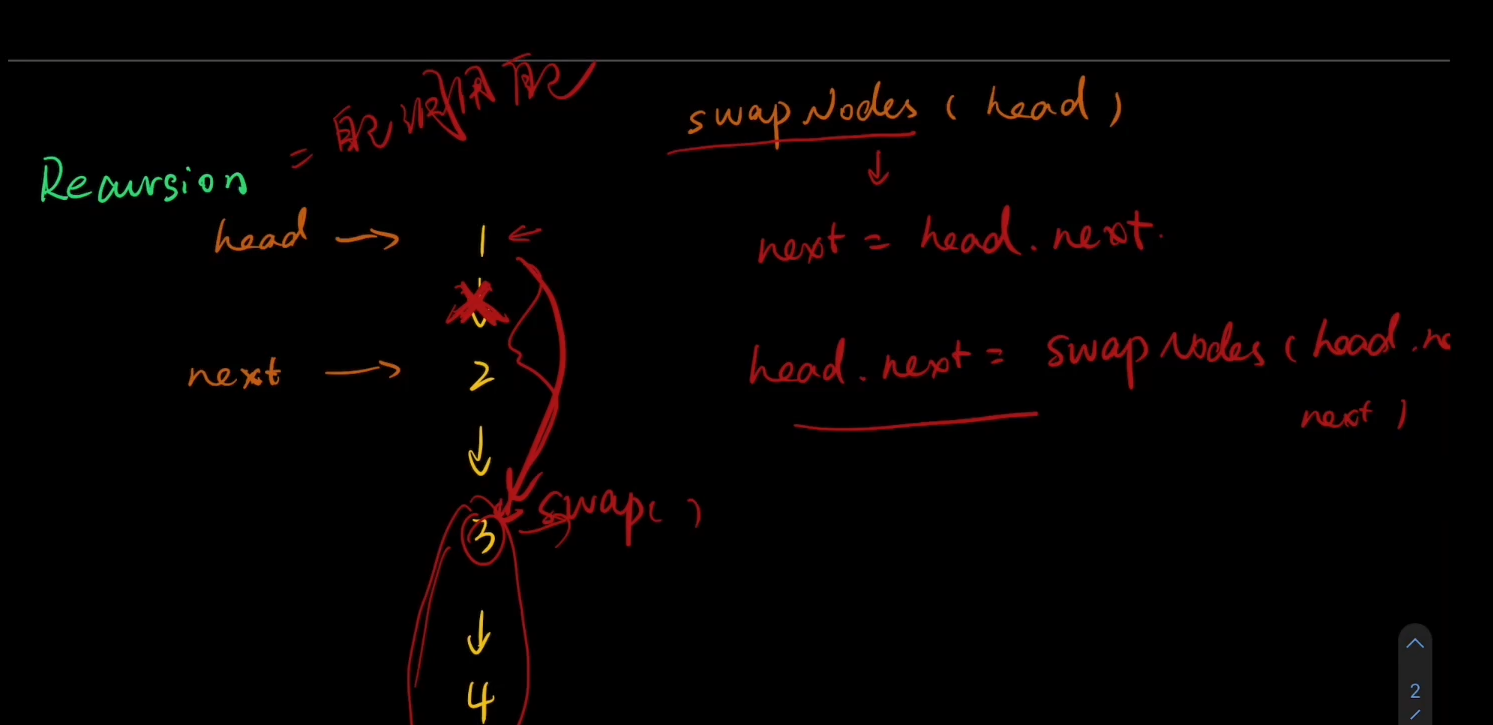 swapNodes (head)
Recursion =
head → 1
next = head.next.
head.next = swapNodes (head.ne
next → 2
next )
3 swap( )
4
2